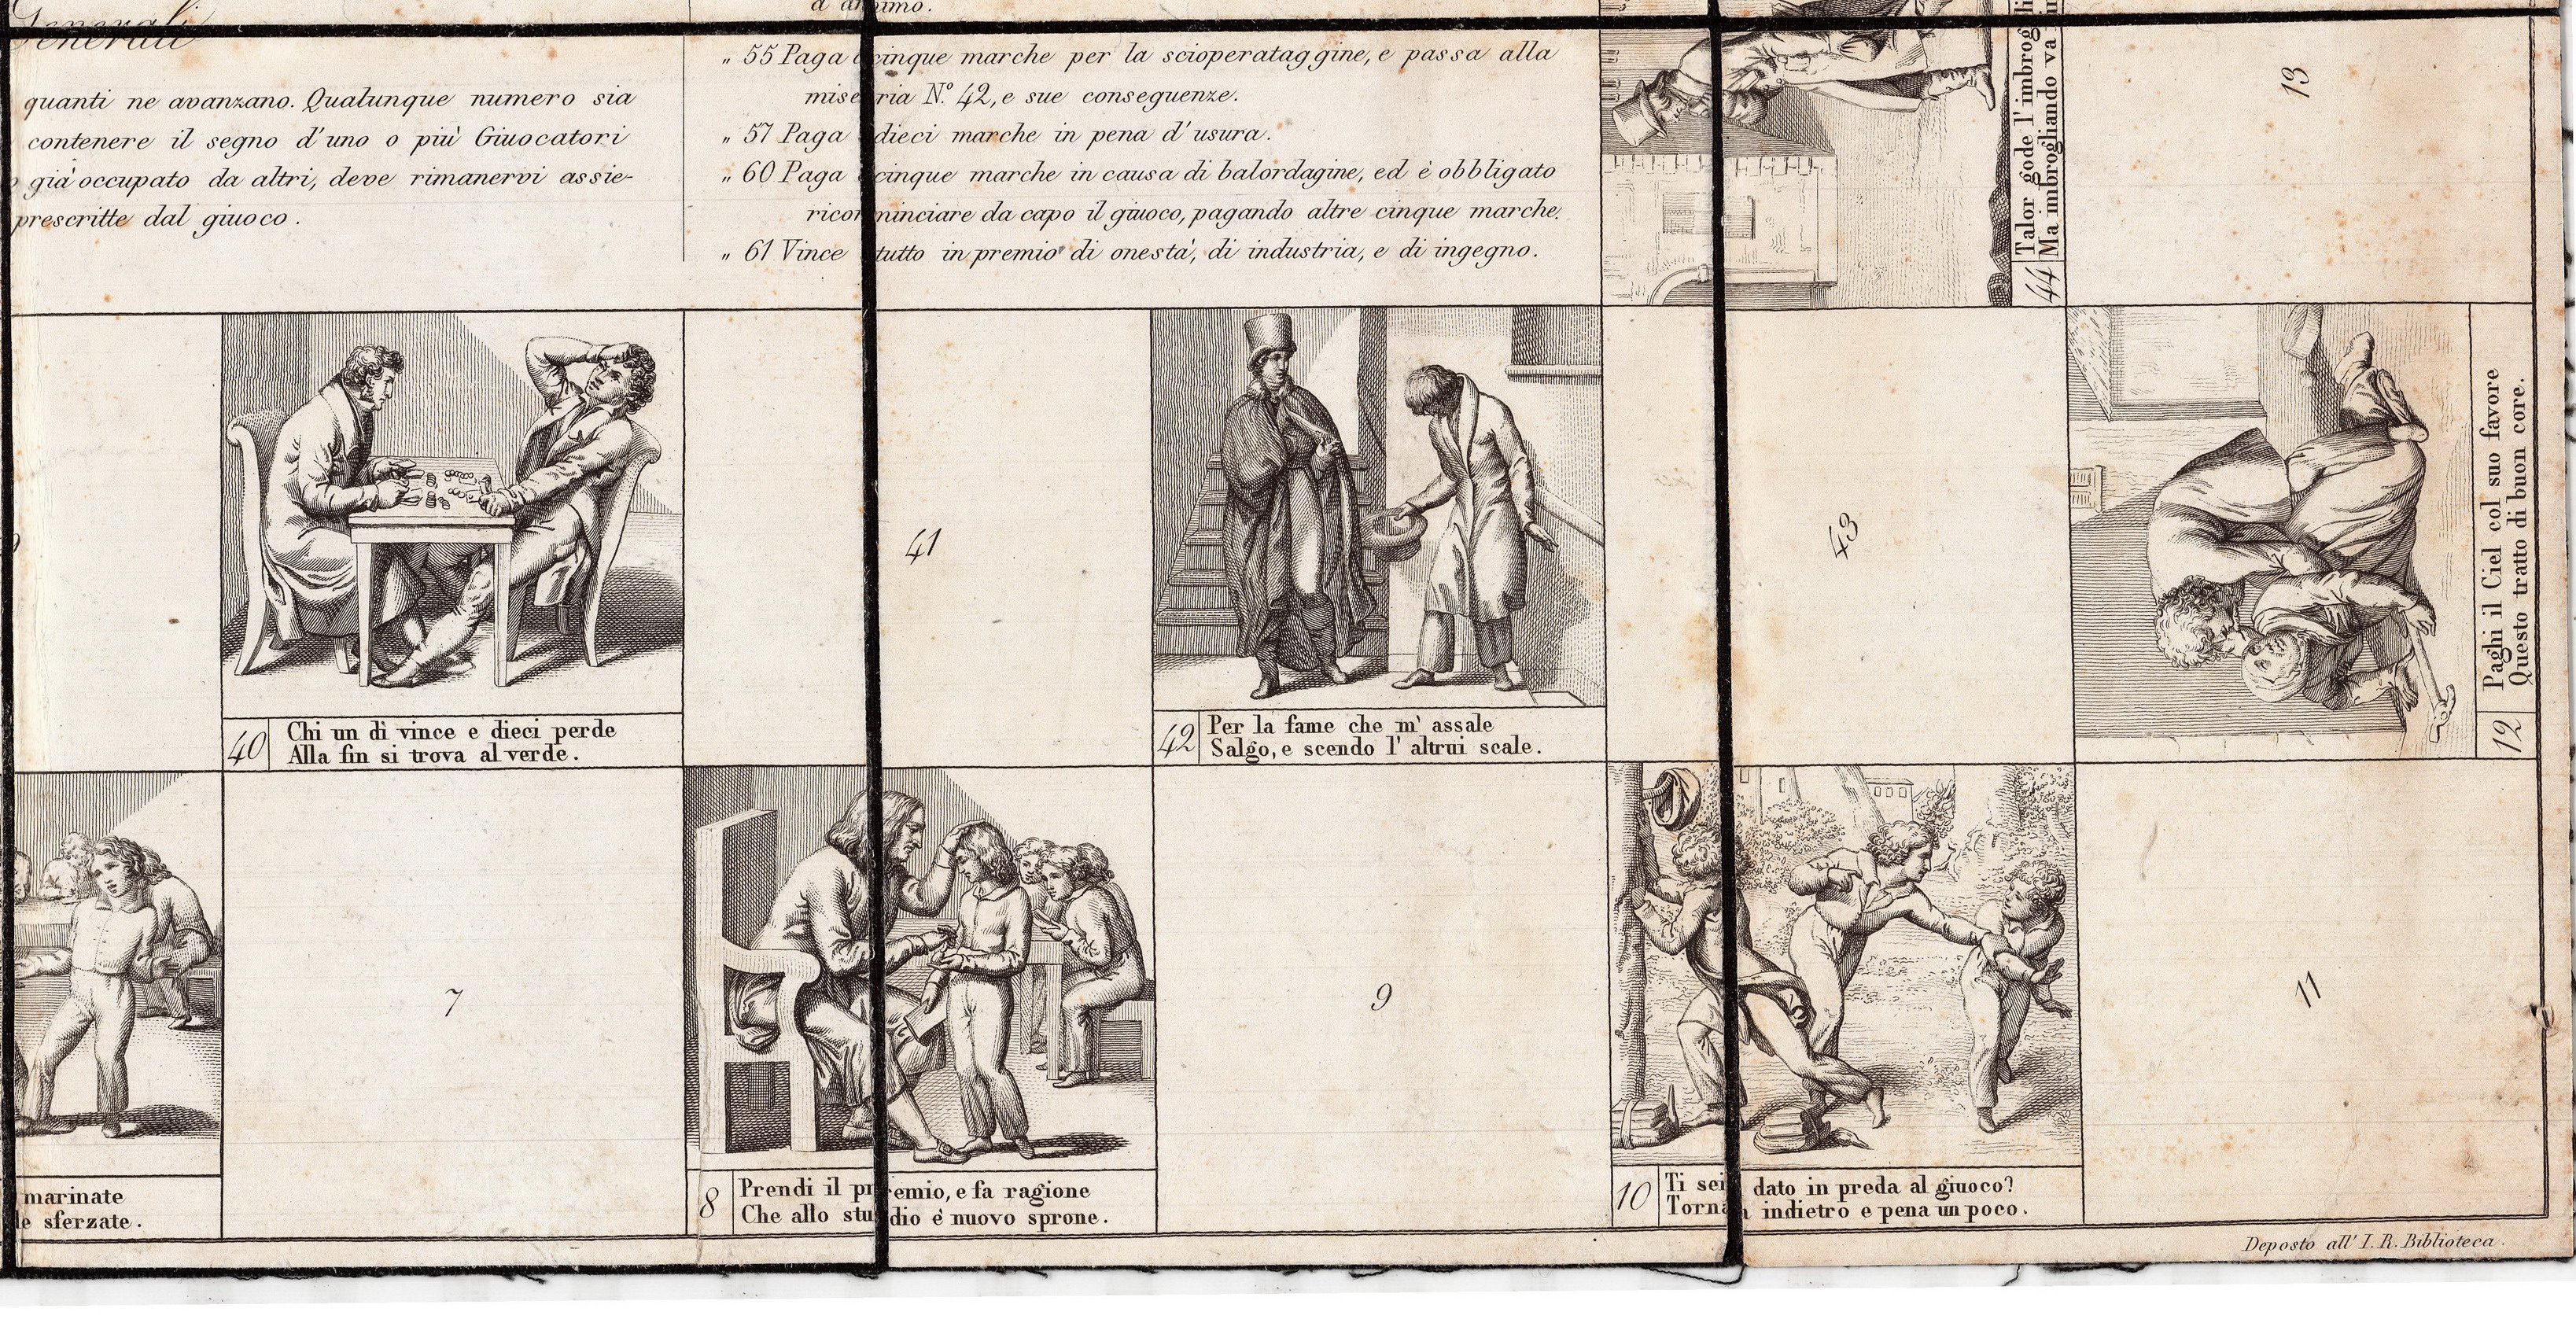 Generali
quanti ne avanzano. Qualunque numero sia
contenere il segno d'uno o più Giuocatori
già occupato da altri, deve rimanervi assie-
prescritte dal giuoco.
„ 55 Paga cinque marche per la scioperataggine, e passa alla
miseria N.º 42, e sue conseguenze.
„ 57 Paga dieci marche in pena d'usura.
„ 60 Paga cinque marche in causa di balordagine, ed è obbligato
ricominciare da capo il giuoco, pagando altre cinque marche.
„ 61 Vince tutto in premio di onestà, di industria, e di ingegno.
44
Talor gode l'imbrogli
Ma imbrogliando va
13
40
Chi un dì vince e dieci perde
Alla fin si trova al verde.
41
42
Per la fame che m' assale
Salgo, e scendo l' altrui scale.
43
12
Paghi il Ciel col suo favore
Questo tratto di buon core.
marinate
le sferzate.
7
8
Prendi il premio, e fa ragione
Che allo studio è nuovo sprone.
9
10
Ti sei dato in preda al giuoco?
Torna indietro e pena un poco.
11
Deposto all' I. R. Biblioteca.